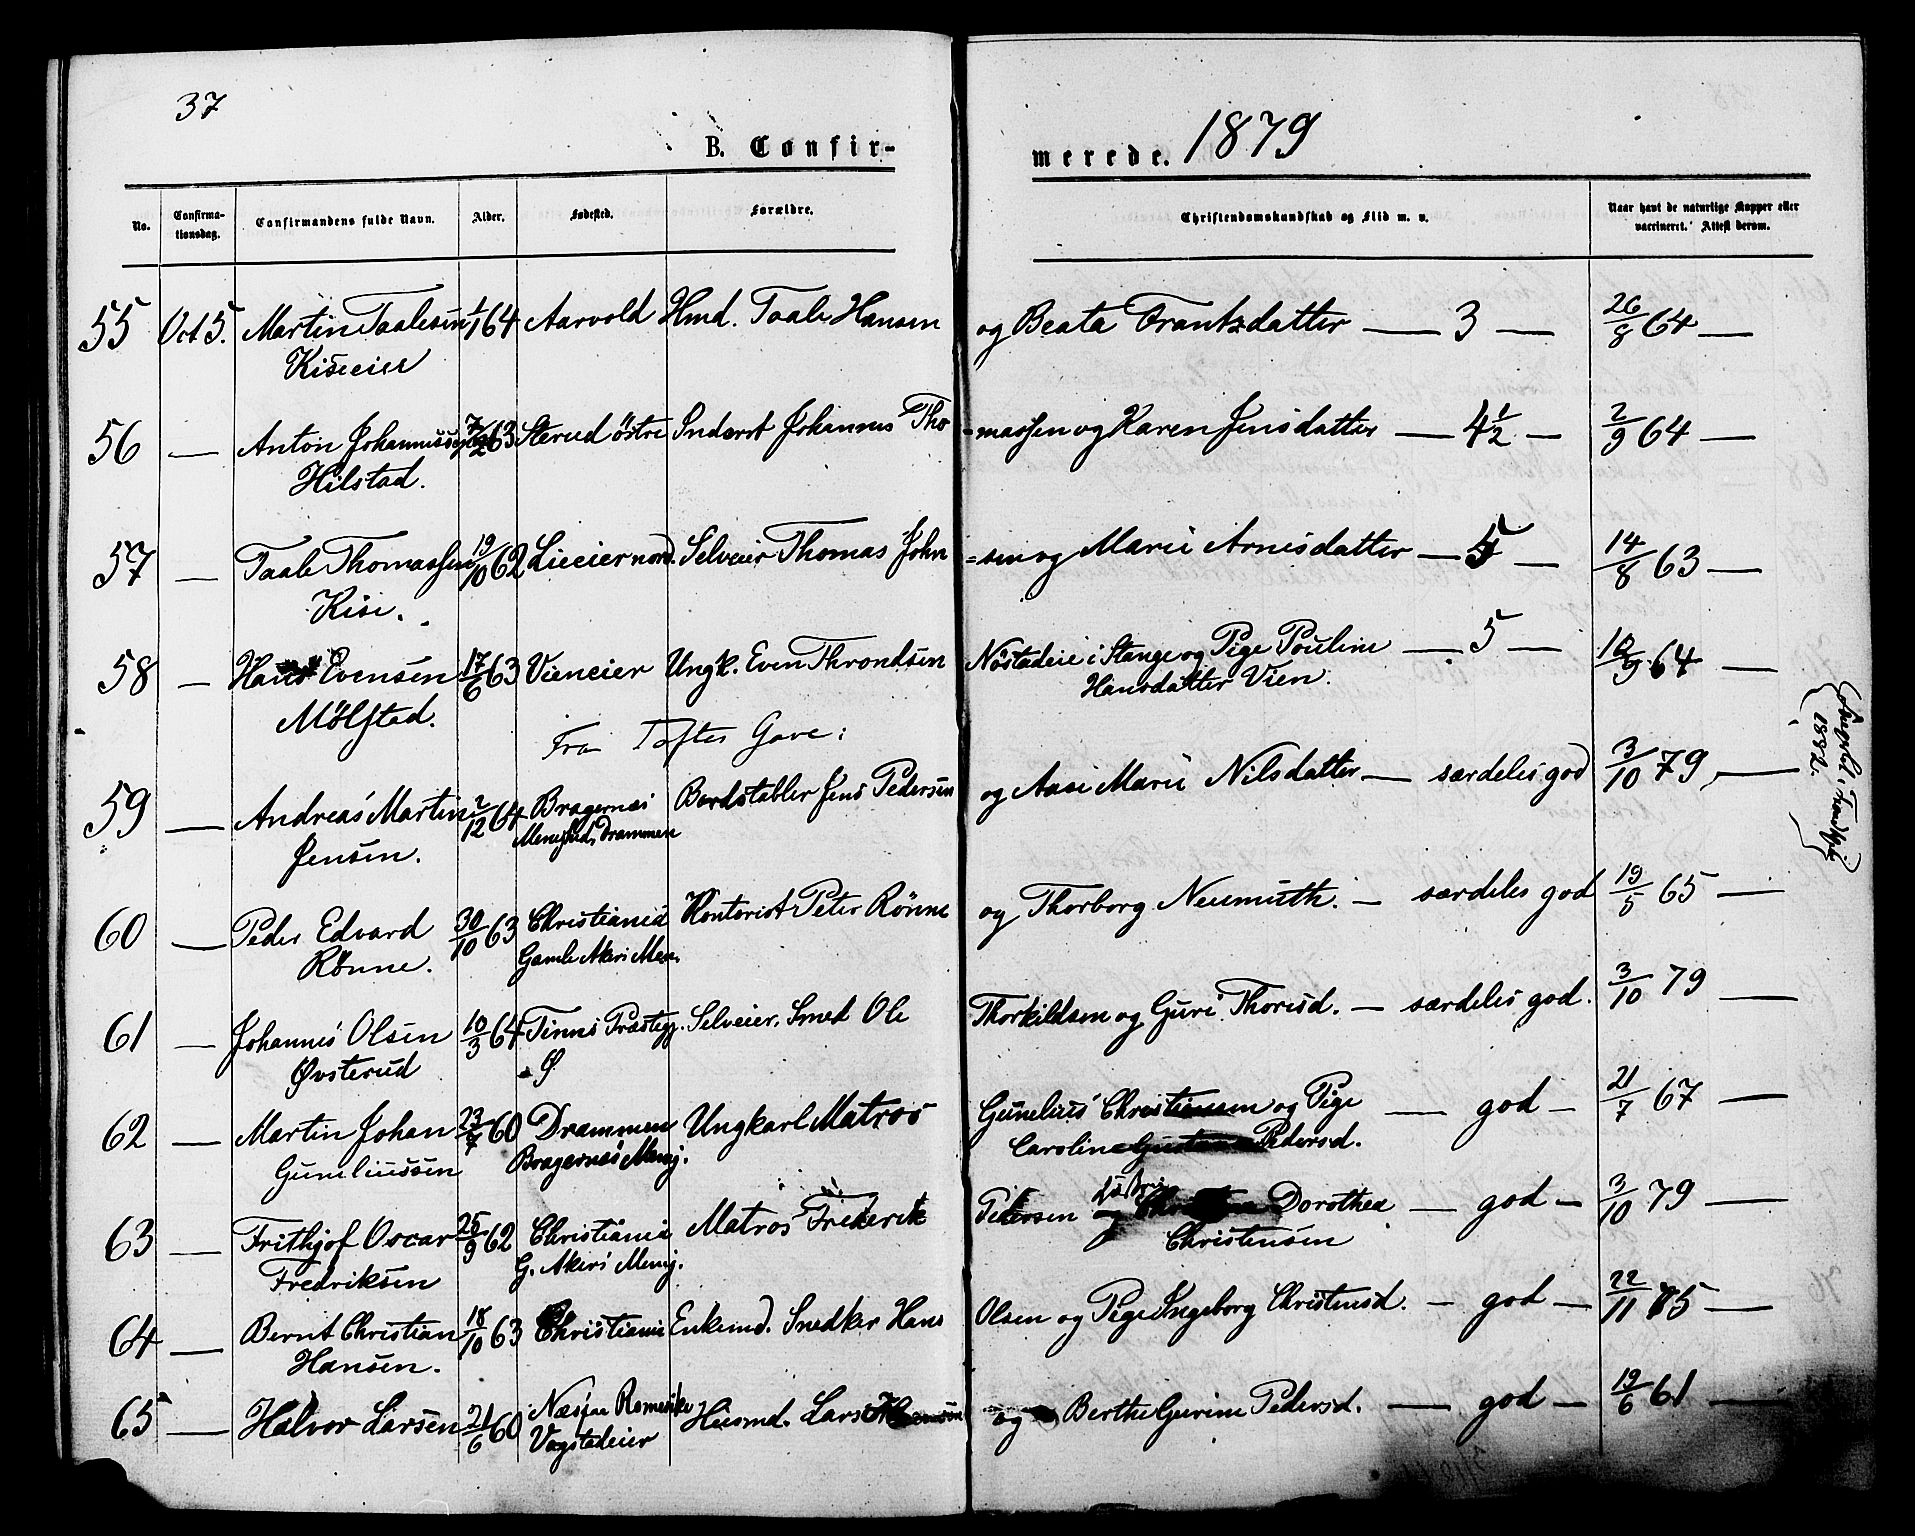 37
B. Confir-
merede. 1879
No.
Confirma-
tionsdag.
Confirmandens fulde Navn.
Alder.
Fødested.
Forældre.
Christendomskundskab og Flid m. v.
Naar havt de naturlige Kopper eller
vaccineret. Attest derom.
55 Oct 5. Martin Taalesen 1/1 64 Aarvold Hmd. Taale Hansen og Beata Frantzdatter — 3 — 26/8 64 —
Kiseeier
56 — Anton Johannessen 7/2 63 Sterud østre Inderst Johannes Tho
-massen og Karen Jensdatter — 4 1/2 — 2/9 64 —
Hilstad.
57 — Taale Thomassen 19/10 62 Lieeier nord. Selveier Thomas John
=sen og Marie Arnesdatter — 5 — 14/8 63 —
Kise.
58 — Hans Evensen 17/6 63 Vieneier Ungk. Even Throndsen
Nøstadeie i Stange og Pige Pouline — 5 — 10/9 64 —
Mølstad.
Hansdatter Vien.
Fra Toftes Gave:
59 — Andreas Martin 2/12 64 Bragernes Bordstabler Jens Pedersen og Aase Marie Nilsdatter — særdeles god 3/10 79 —
Jensen.
Menighed, Drammen
1882.
60 — Peder Edvard 30/10 63 Christiania Kontorist Peter Rønne og Thorborg Neumuth. — særdeles god 19/5 65 —
Rønne.
Gamle Akers Men.
61 — Johannes Olsen 10/3 64 Tinns Præstegj. Selveier, Smed Ole
Thorkildsen og Guri Thoresd. — særdeles god. 3/10 79 —
Øvsterud
62 — Martin Johan 23/7 60 Drammen Ungkarl Matros
Gunelius Christensen og Pige — god — 21/7 67 —
Guneliussen
Bragernes Menig.
Caroline Pedersd.
63 — Frithjof Oscar 25/9 62 Christiania Matros Frederik
Pedersen Dorothea — god — 3/10 79 —
Fredriksen
G. Akers Menig.
Christensen
64 — Bernt Christian 18/10 63 Christiania Enkemd. Snedker Hans
Olsen og Pige Ingeborg Christensd. — god — 22/11 75 —
Hansen.
65 — Halvor Larsen 21/6 60 Næs paa Romerike Husmd. Lars og Berthe Gurine Pedersd. — god — 19/6 61 —
Vagstadeier